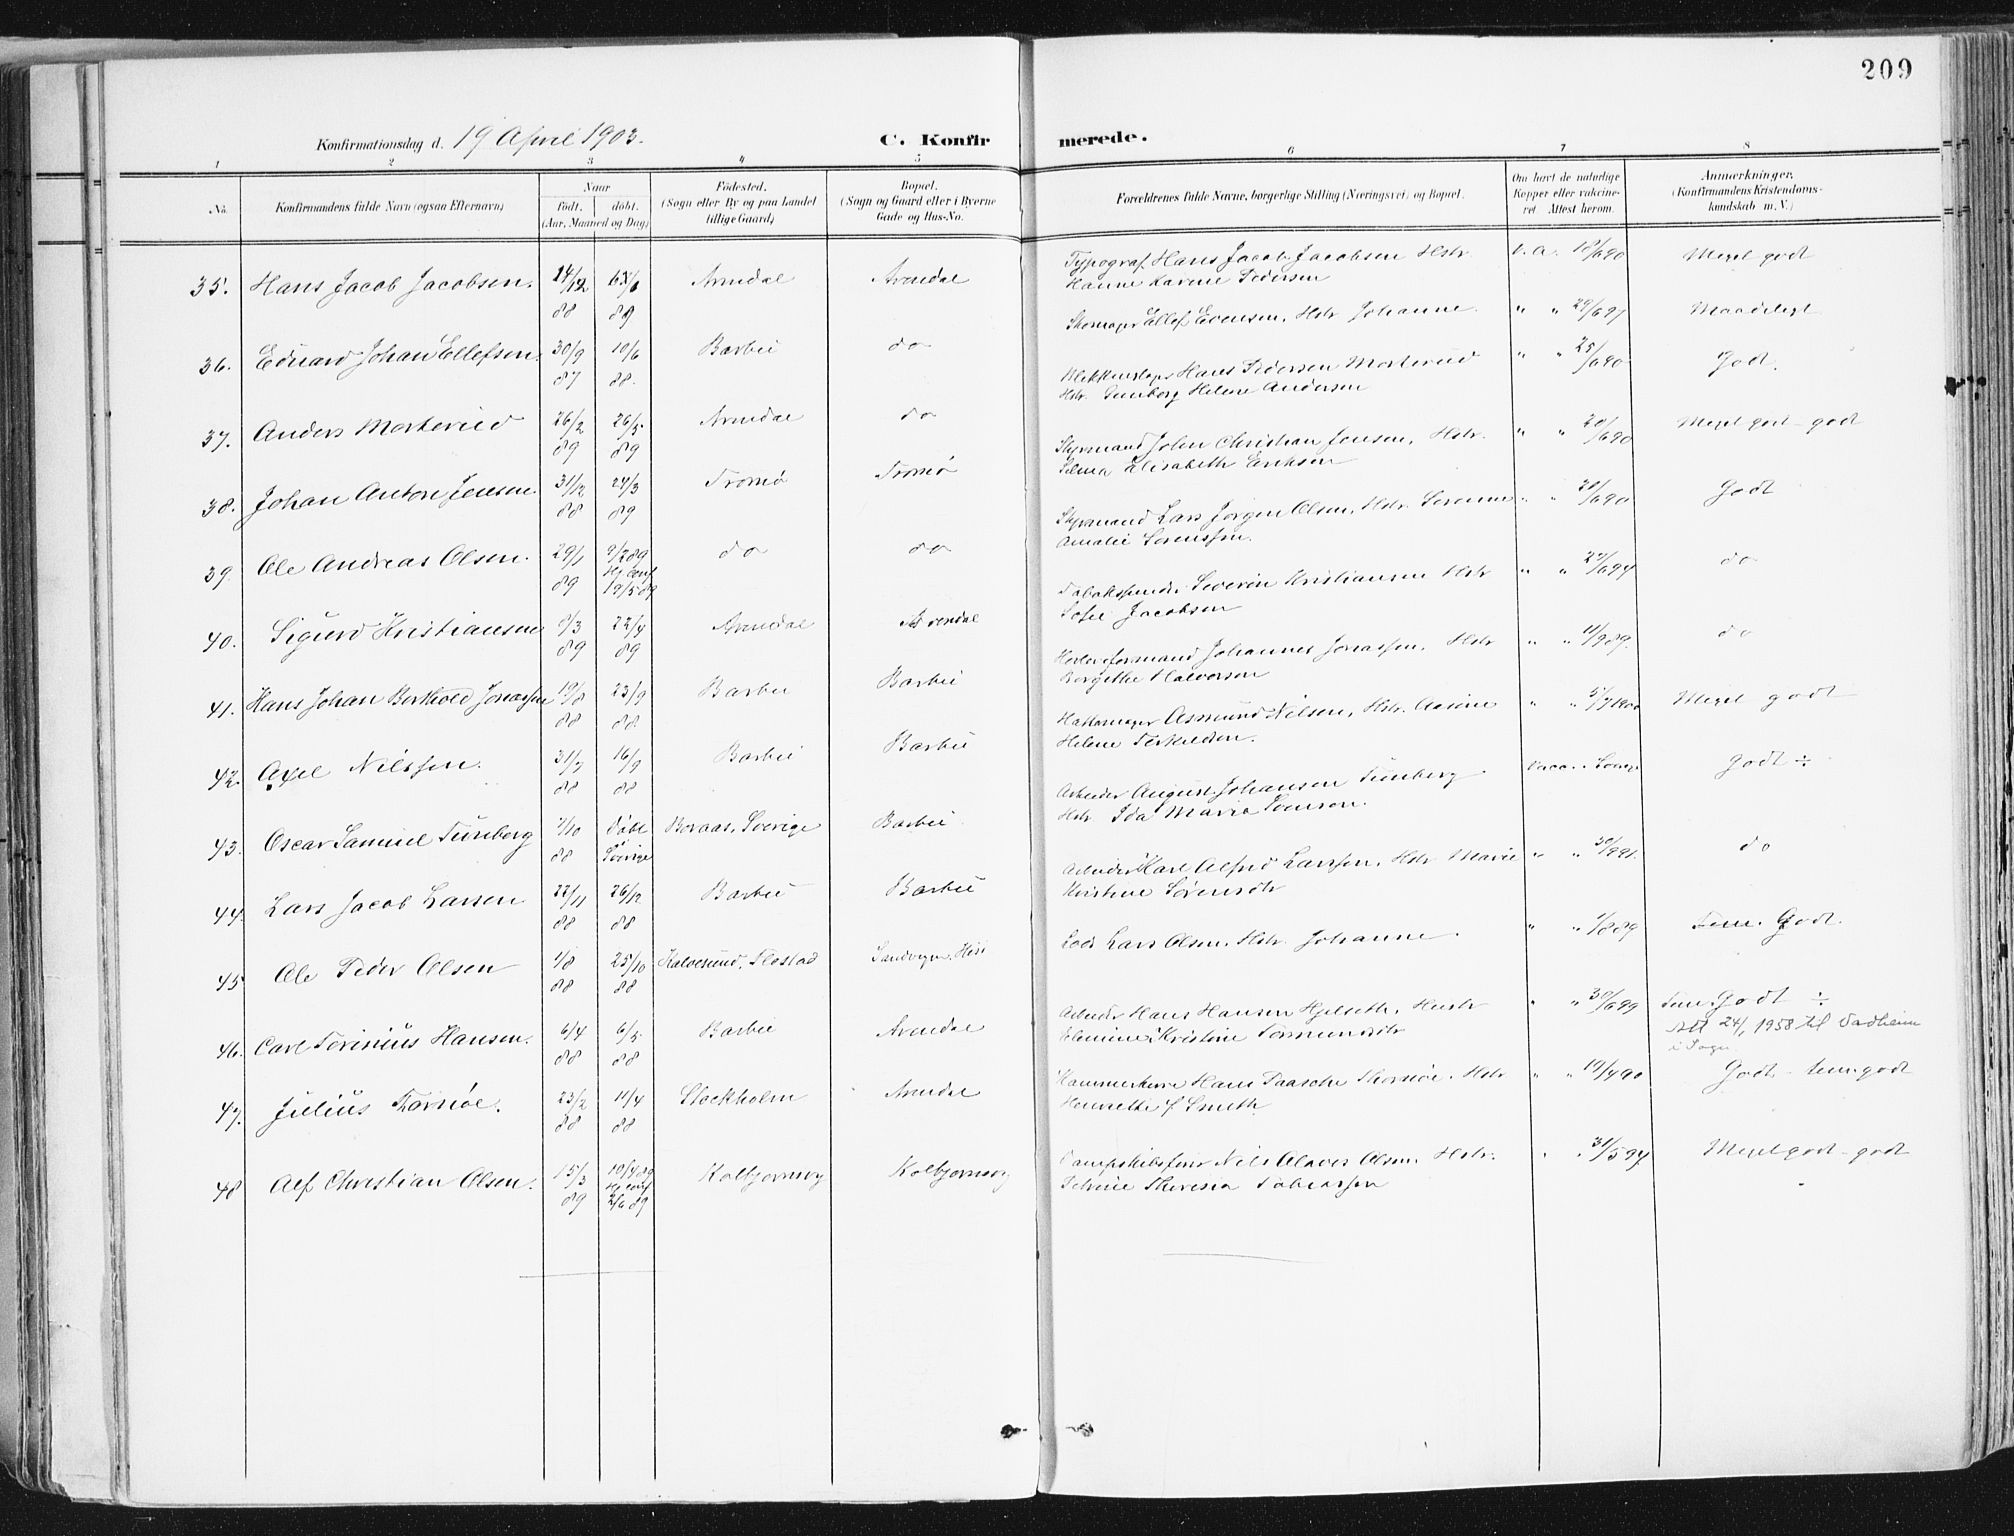 209
Konfirmationsdag d. 19 April 1903.
C. Konfirmerede.
1 2 3 4 5 6 7 8
No. Konfirmandens fulde Navn (ogsaa Efternavn) Naar født, døbt. (Aar, Maaned og Dag) Fødested. (Sogn eller By og paa Landet tillige Gaard) Bopæl. (Sogn og Gaard eller i Byerne Gade og Hus-No. Forældrenes fulde Navne, borgerlige Stilling (Næringsvei) og Bopæl. Om havt de naturlige Kopper eller vakcineret. Attest herom. Anmærkninger. (Konfirmandens Kristendomskundskab m. V.)
35. Hans Jacob Jacobsen. 14/12 88 Arendal Arendal Typograf Hans Jacob Jacobsen Hstr. v. a. 18/6 90 Meget godt
Hanne Karine Pedersen
36. Eduard Johan Ellefsen. 30/9 87 10/6 88. Barbu do Skomager Ellef Evensen, Hstr Johanne. " " 29/6 97 Maadeligt
37. Anders Morterud 26/2 89 26/5 89 Arendal do Hans Pedersen Morterud " " 25/6 90 Godt.
Hstr. Gunborg Helene Andersen
38. Johan Anton Jensen 31/12 88 24/3 89 Tromø Tromø Styrmand John Christian Jensen, Hstr. " " 20/6 90 Meget godt - godt
Selma Elisabeth Eriksen
39. Ole Andreas Olsen. 29/1 89 9/2 89 Hj. conf 19/5 89 do do Styrmand Lars Jørgen Olsen, Hstr. Serenne " " 20/6 90 Godt
Amalie Sørenssen.
40. Sigurd Kristiansen 9/3 89 22/4 89 Arendal Arendal Severin Kristiansen Hstr " " 6 94 do
Sofie Jacobsen
41. Hans Johan Berthold Jonassen 19/8 88 23/9 88. Barbu Barbu Johannes Jonassen, Hstr " " 11/9 89. do
Borgithe Halvorsen
42. Axel Nilssen. 31/7 88 16/9 88 Barbu Barbu Hattemager Asmund Nilsen, Hstr. " " 5/7 1900 Meget godt
Helene Terkildsen.
43. Oscar Samuel Tunberg /10 88 Døbt i Sverige Boraas, Sverige Barbu. Arbeider August Johansen Tunberg. Vacc. i Sverige Godt ÷
Hstr. Ida Maria Svenson.
44. Lars Jacob Larsen 22/11 88 26/12 88 Barbu Barbu Arbeider Karl Alfred Larssen, Hstr Marie " " 30/9 91. do
Kristine Sørensdtr
45 Ole Peder Olsen 1/8 88 25/10 88 Kalvesund, Flostad Sandvigen, Hisø Lods Lars Olsen, Hstr. Johanne. " " 1/8 89 Tem. Godt.
46. Carl Torinius Hansen. 6/4 88 6/5 88 Barbu Arendal Arbeider Hans Hansen Hjelseth, Hustr " " 30/6 99 Tem. Godt ÷
Kristine Tormundsdtr Att 24/1 1958 til Vadheim
i Sogn
47. Julius Thorsøe. 23/2 88 11/4 88 Stockholm Arendal Hans Paasche Thorsøe, Hstr " " 19/4 90 Godt - tem. godt
Henriette f. Smith
48 Alf Christian Olsen. 15/3 89 10/4 89 Hj conf 2/6 89 Kolbjørnsvg Kolbjørnsvg Dampskibsfører Nils Olaves Olsen, Hstr. " " 31/5 94 Meget godt - godt
Theresia Tobiassen